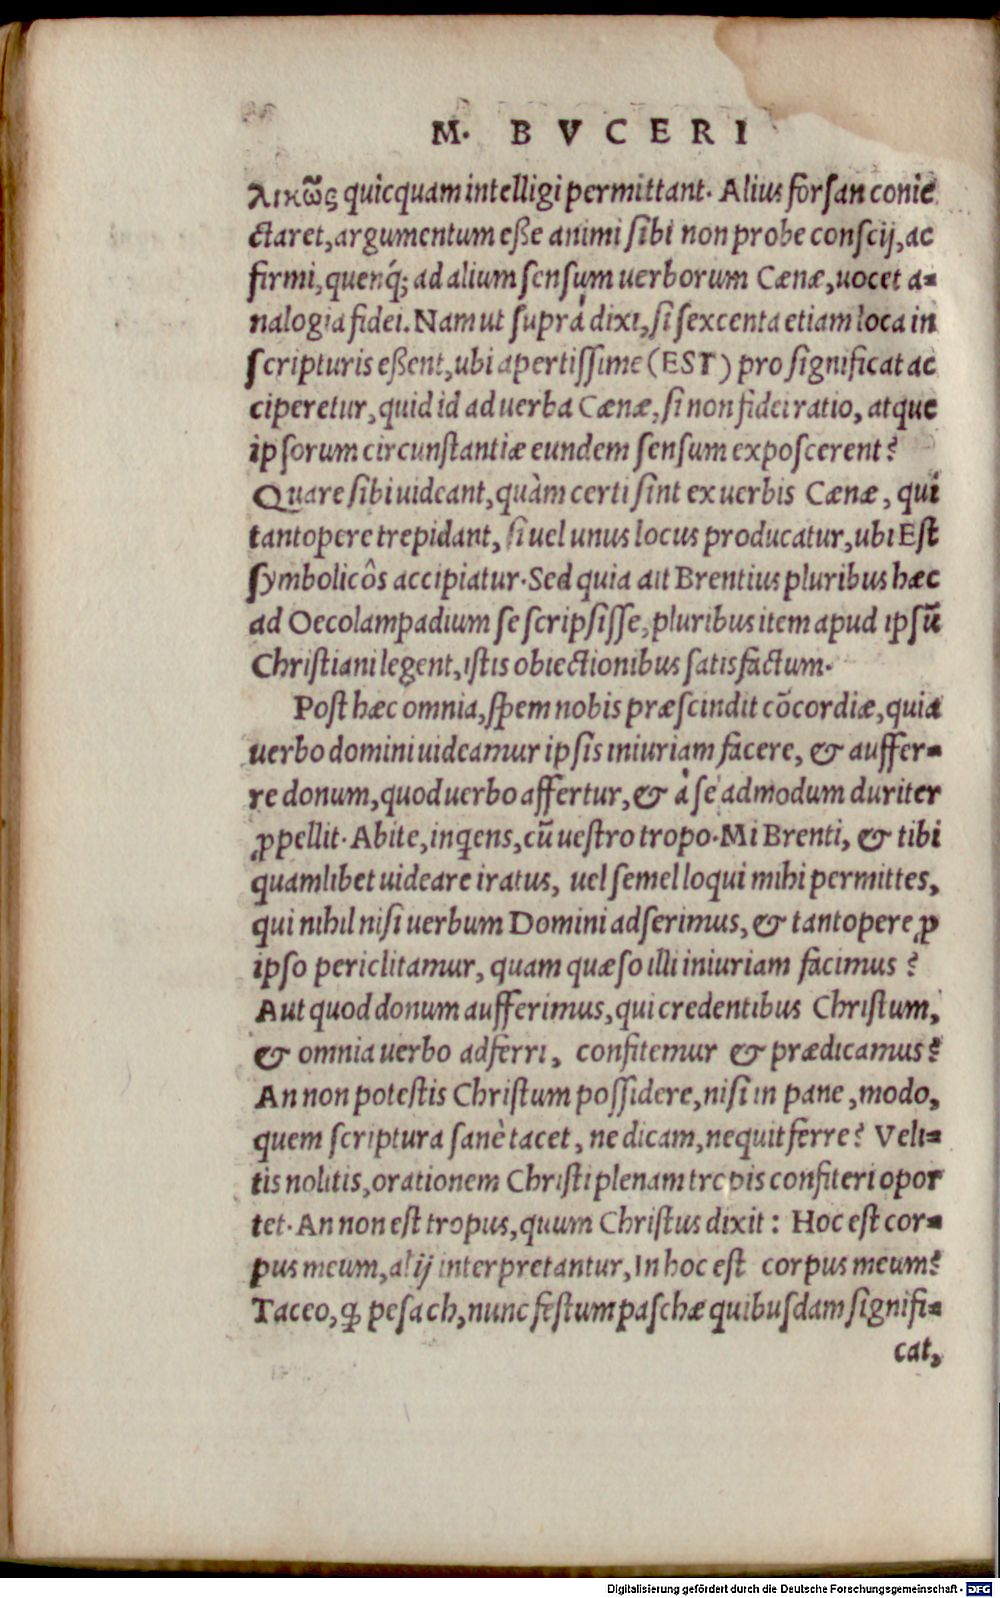 M. BVCERI
λικῶς quicquam intelligi permittant. Alius forsan conie
ctaret, argumentum eße animi sibi non probe conscij, ac
firmi, quenq́; ad alium sensum uerborum Cænæ, uocet a-
nalogia fidei. Nam ut suprà dixi, si sexcenta etiam loca in
scripturis eßent, ubi apertissime (EST) pro significat ac
ciperetur, quid id ad uerba Cænæ, si non fidei ratio, atque
ipsorum circunstantiæ eundem sensum exposcerent?
Quare sibi uideant, quàm certi sint ex uerbis Cænæ, qui
tantopere trepidant, si uel unus locus producatur, ubi Est
symbolicôs accipiatur. Sed quia ait Brentius pluribus hæc
ad Oecolampadium se scripsisse, pluribus item apud ipsũ
Christiani legent, istis obiectionibus satisfactum.
Post hæc omnia, spem nobis præscindit cõcordiæ, quia
uerbo domini uideamur ipsis iniuriam facere, & auffer-
re donum, quod uerbo affertur, & à se admodum duriter
ꝓpellit. Abite, inqens, cũ uestro tropo. Mi Brenti, & tibi
quamlibet uideare iratus, uel semel loqui mihi permittes,
qui nihil nisi uerbum Domini adserimus, & tantopere ꝓ
ipso periclitamur, quam quæso illi iniuriam facimus?
Aut quod donum aufferimus, qui credentibus Christum,
& omnia uerbo adferri, confitemur & prædicamus?
An non potestis Christum possidere, nisi in pane, modo,
quem scriptura sanè tacet, ne dicam, nequit ferre? Veli-
tis nolitis, orationem Christi plenam tropis confiteri opor
tet. An non est tropus, quum Christus dixit: Hoc est cor-
pus meum, alij interpretantur, In hoc est corpus meum?
Taceo, ꝙ pesach, nunc festum paschæ quibusdam signifi-
cat,
Digitalisierung gefördert durch die Deutsche Forschungsgemeinschaft - DFG